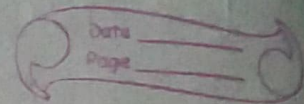 Date
Page